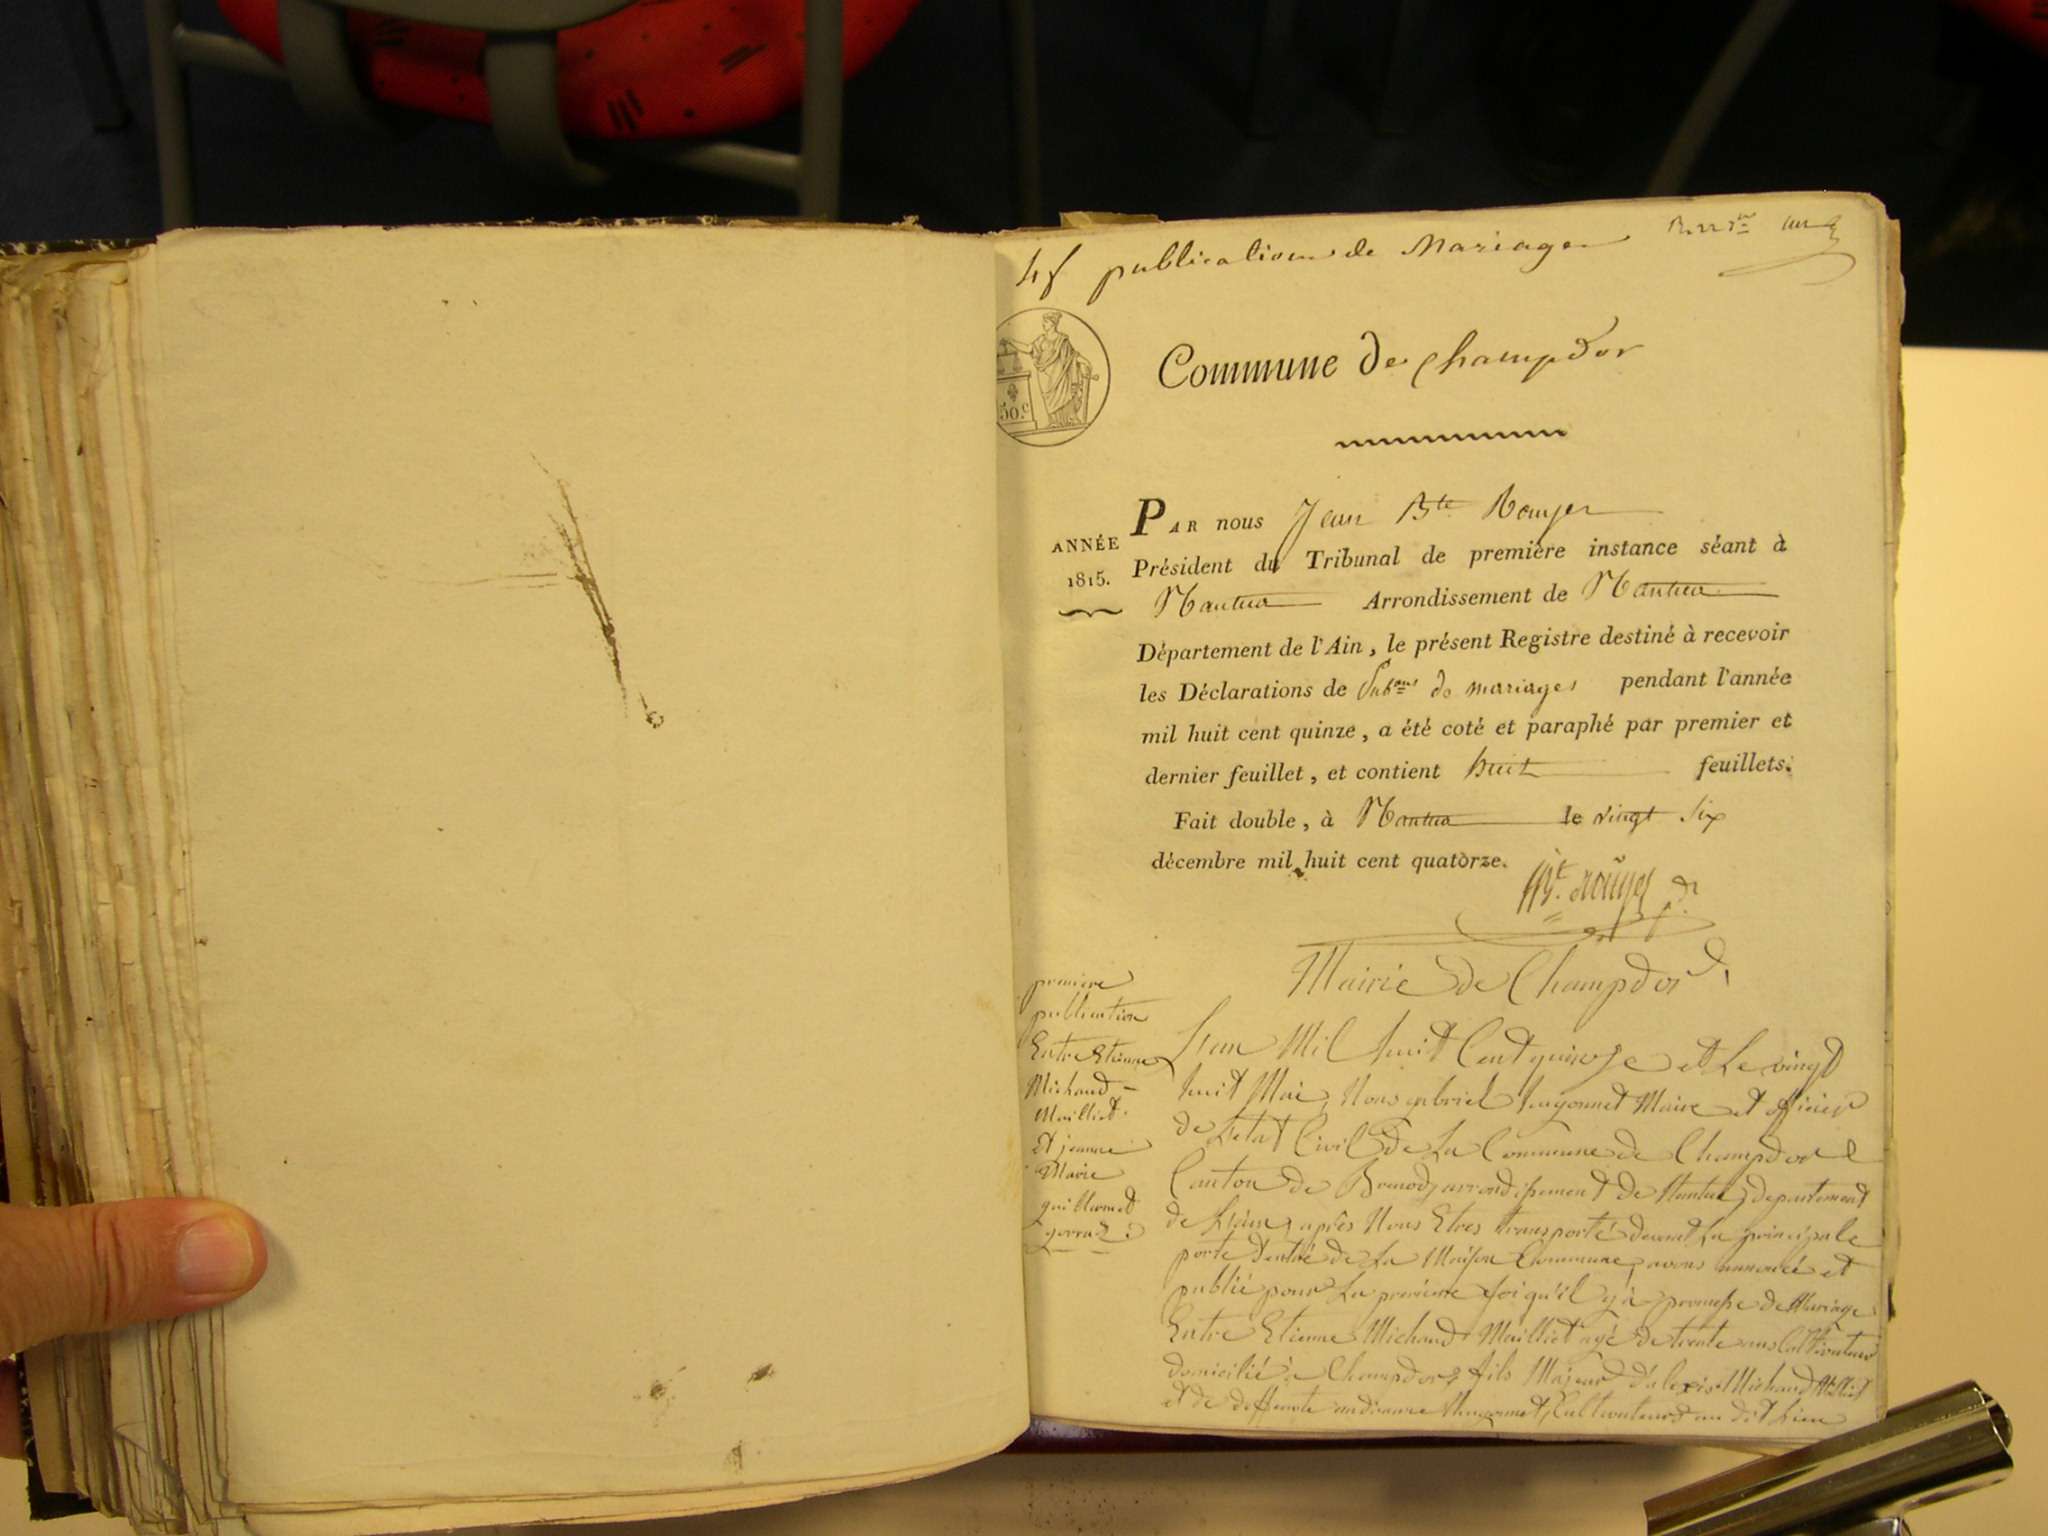 48 publication de Mariage
un
Commune de Champdor
50.c
PAR nous Jean Bte Rouyer
ANNÉE
1815.
Président du Tribunal de première instance séant à
Nantua Arrondissement de Nantua
Département de l'Ain, le présent Registre destiné à recevoir
les Déclarations de Pubons de mariages pendant l'année
mil huit cent quinze, a été coté et paraphé par premier et
dernier feuillet, et contient huit feuillets.
Fait double, à Nantua le vingt six
décembre mil huit cent quatorze.
Bt. rouyer
Mairie de Champdor
premiere
publication
Entre Etienne
Michaud
Maillet
Et jeanne
Marie
guillermet
gorraz
Lan Mil huit Cent quinze et Le vingt
huit Mai, Nous gabriel hugonnet Maire et officier
de Letat Civil de La Commune de Champdor
Canton de Brenod, arrondissement de Nantua, departement
de Lain, après Nous Etres transporté devant La principale
porte d'entré de La Maison Commune, avons annoncé et
publié pour La premiere foi qu'il y à promesse de Mariage
Entre Etienne Michaud Maillet agé de trente ans Cultivateur
domicilié à Champdor, fils Majeur d'alexis Michaud Maillet
et de deffunte hugonnet, Cultivateurs au dit Lieu